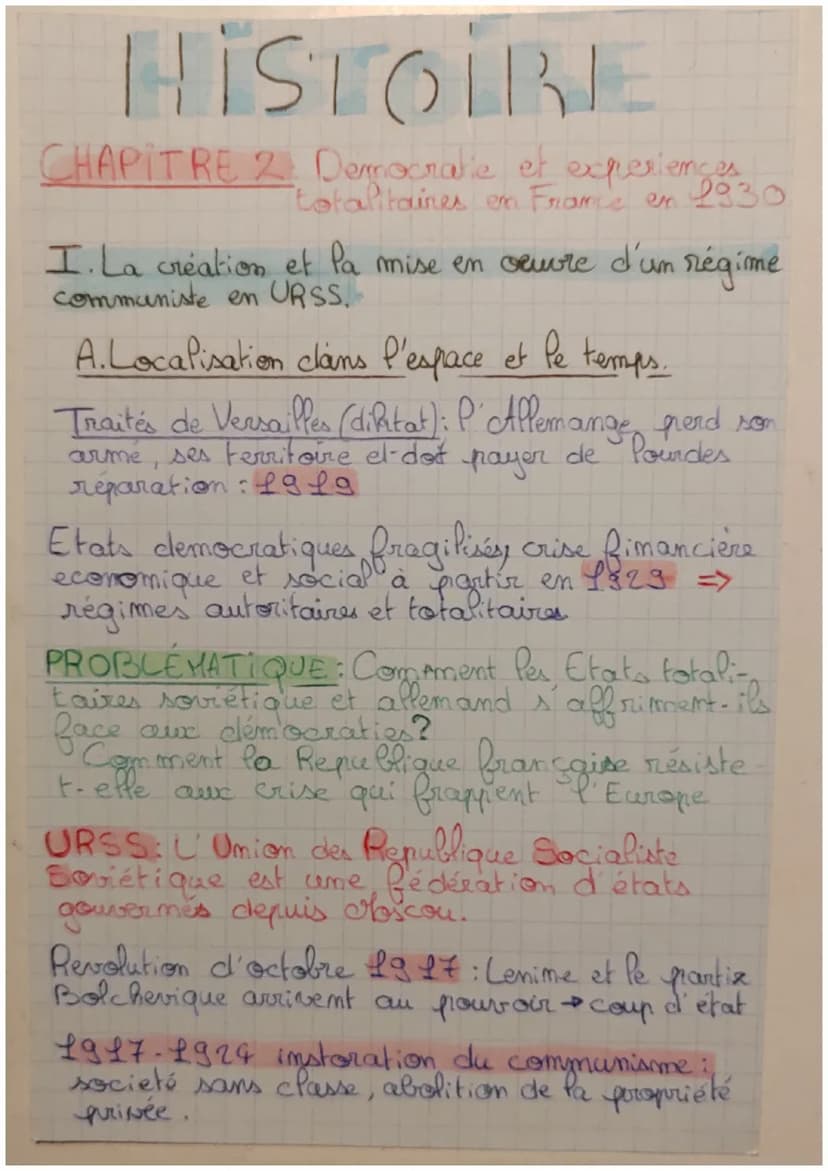 HISTOIRE
CHAPITRE 2: Democratie et experiences
totalitaires en France en 1930
I. La création et la mise en oeuvre d'un régime
communiste en URSS.
A. Localisation dans l'espace et le temps.
Traités de Versailles (diktat): l'Allemange perd son
armé, ses territoire et doit payer de lourdes
réparation : 1919
Etats democratiques fragilisés, crise financière
economique et social à partir en 1929 ⇒
régimes autoritaires et totalitaires
PROBLÉMATIQUE : Comment les Etats totali-
taires soviétique et allemand s'affriment-ils
face aux démocraties?
Comment la Republique française résiste-
t-elle aux crise qui frappent l'Europe
URSS: L'Union des Republique Socialiste
Soviétique est une fédération d'états
gouvernés depuis Moscou.
Revolution d'octobre 1917 : Lenine et le partie
Bolchevique arrivent au pouvoir → coup d'état
1917-1924 instoration du communisme :
societé sans classe, abolition de la propriété
privée.